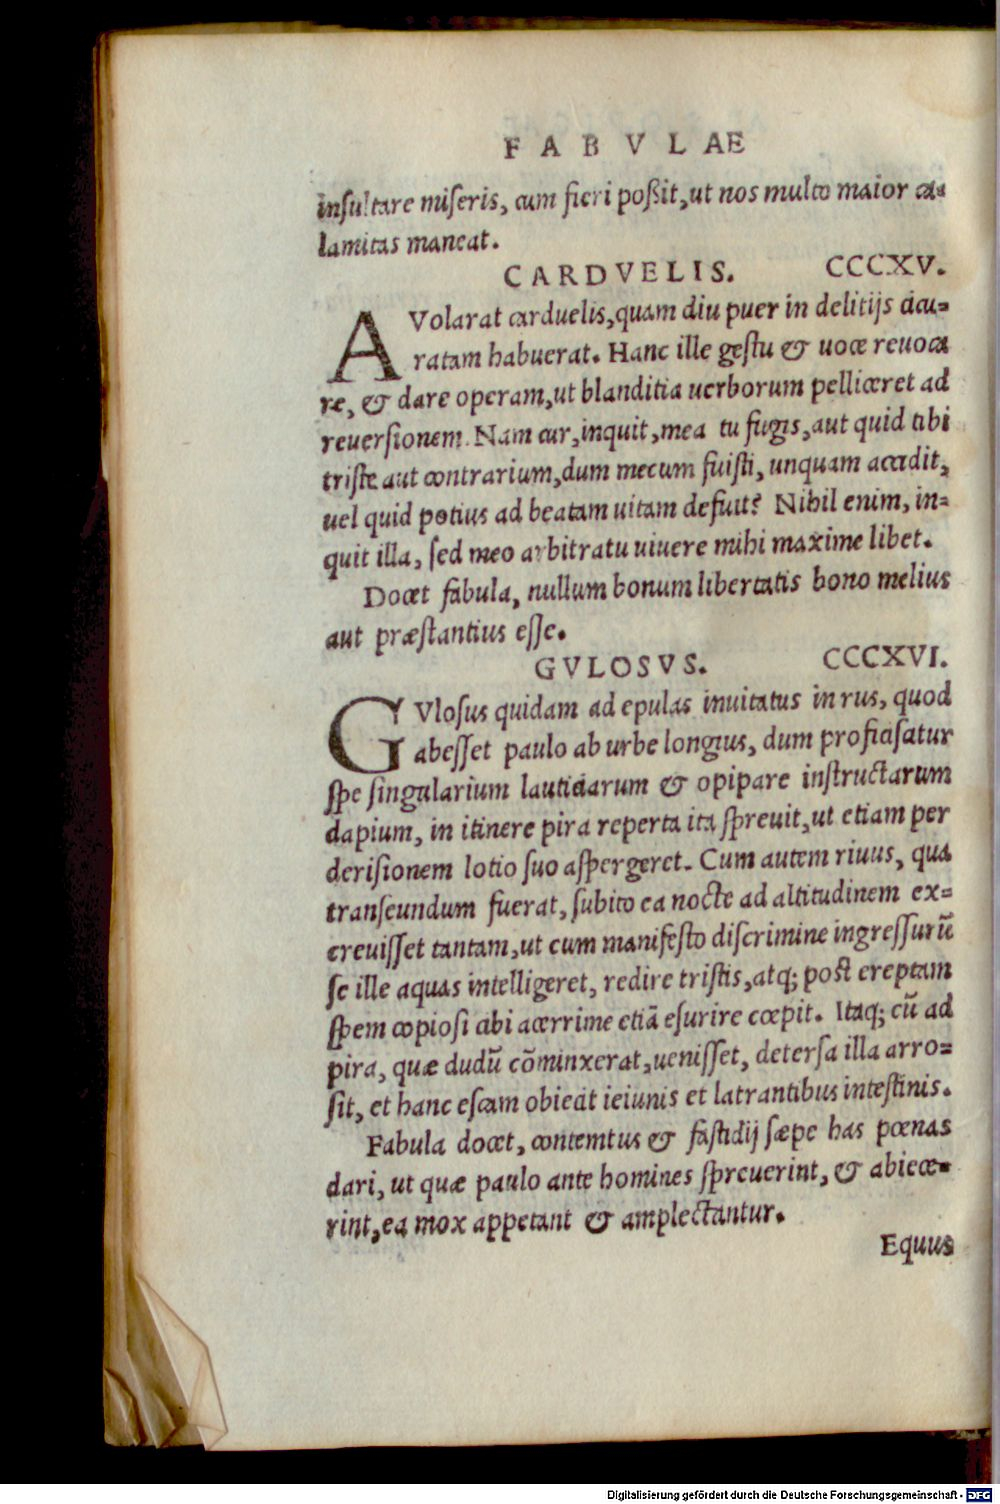 FABVLAE
insultare miseris, cum fieri poßit, ut nos multo maior ca-
lamitas maneat.
CARDVELIS. CCCXV.
AVolarat carduelis, quam diu puer in delitijs accu-
ratam habuerat. Hanc ille gestu & uoce reuoca
re, & dare operam, ut blanditia uerborum pelliceret ad
reuersionem. Nam cur, inquit, mea tu fugis, aut quid tibi
triste aut contrarium, dum mecum fuisti, unquam accidit,
uel quid potius ad beatam uitam defuit? Nihil enim, in-
quit illa, sed meo arbitratu uiuere mihi maxime libet.
Docet fabula, nullum bonum libertatis bono melius
aut præstantius esse.
GVLOSVS. CCCXVI.
GVlosus quidam ad epulas inuitatus in rus, quod
abesset paulo ab urbe longius, dum proficisatur
spe singularium lauticiarum & opipare instructarum
dapium, in itinere pira reperta ita spreuit, ut etiam per
derisionem lotio suo aspergeret. Cum autem riuus, qua
transeundum fuerat, subito ea nocte ad altitudinem ex-
creuisset tantam, ut cum manifesto discrimine ingressurũ
se ille aquas intelligeret, redire tristis, atq; post ereptam
spem copiosi cibi acerrime etiã esurire cœpit. Itaq; cũ ad
pira, quæ dudũ cõminxerat, uenisset, detersa illa arro-
sit, et hanc escam obiecit ieiunis et latrantibus intestinis.
Fabula docet, contemtus & fastidij sæpe has pœnas
dari, ut quæ paulo ante homines spreuerint, & abiece-
rint, ea mox appetant & amplectantur.
Equus
Digitalisierung gefördert durch die Deutsche Forschungsgemeinschaft - DFG